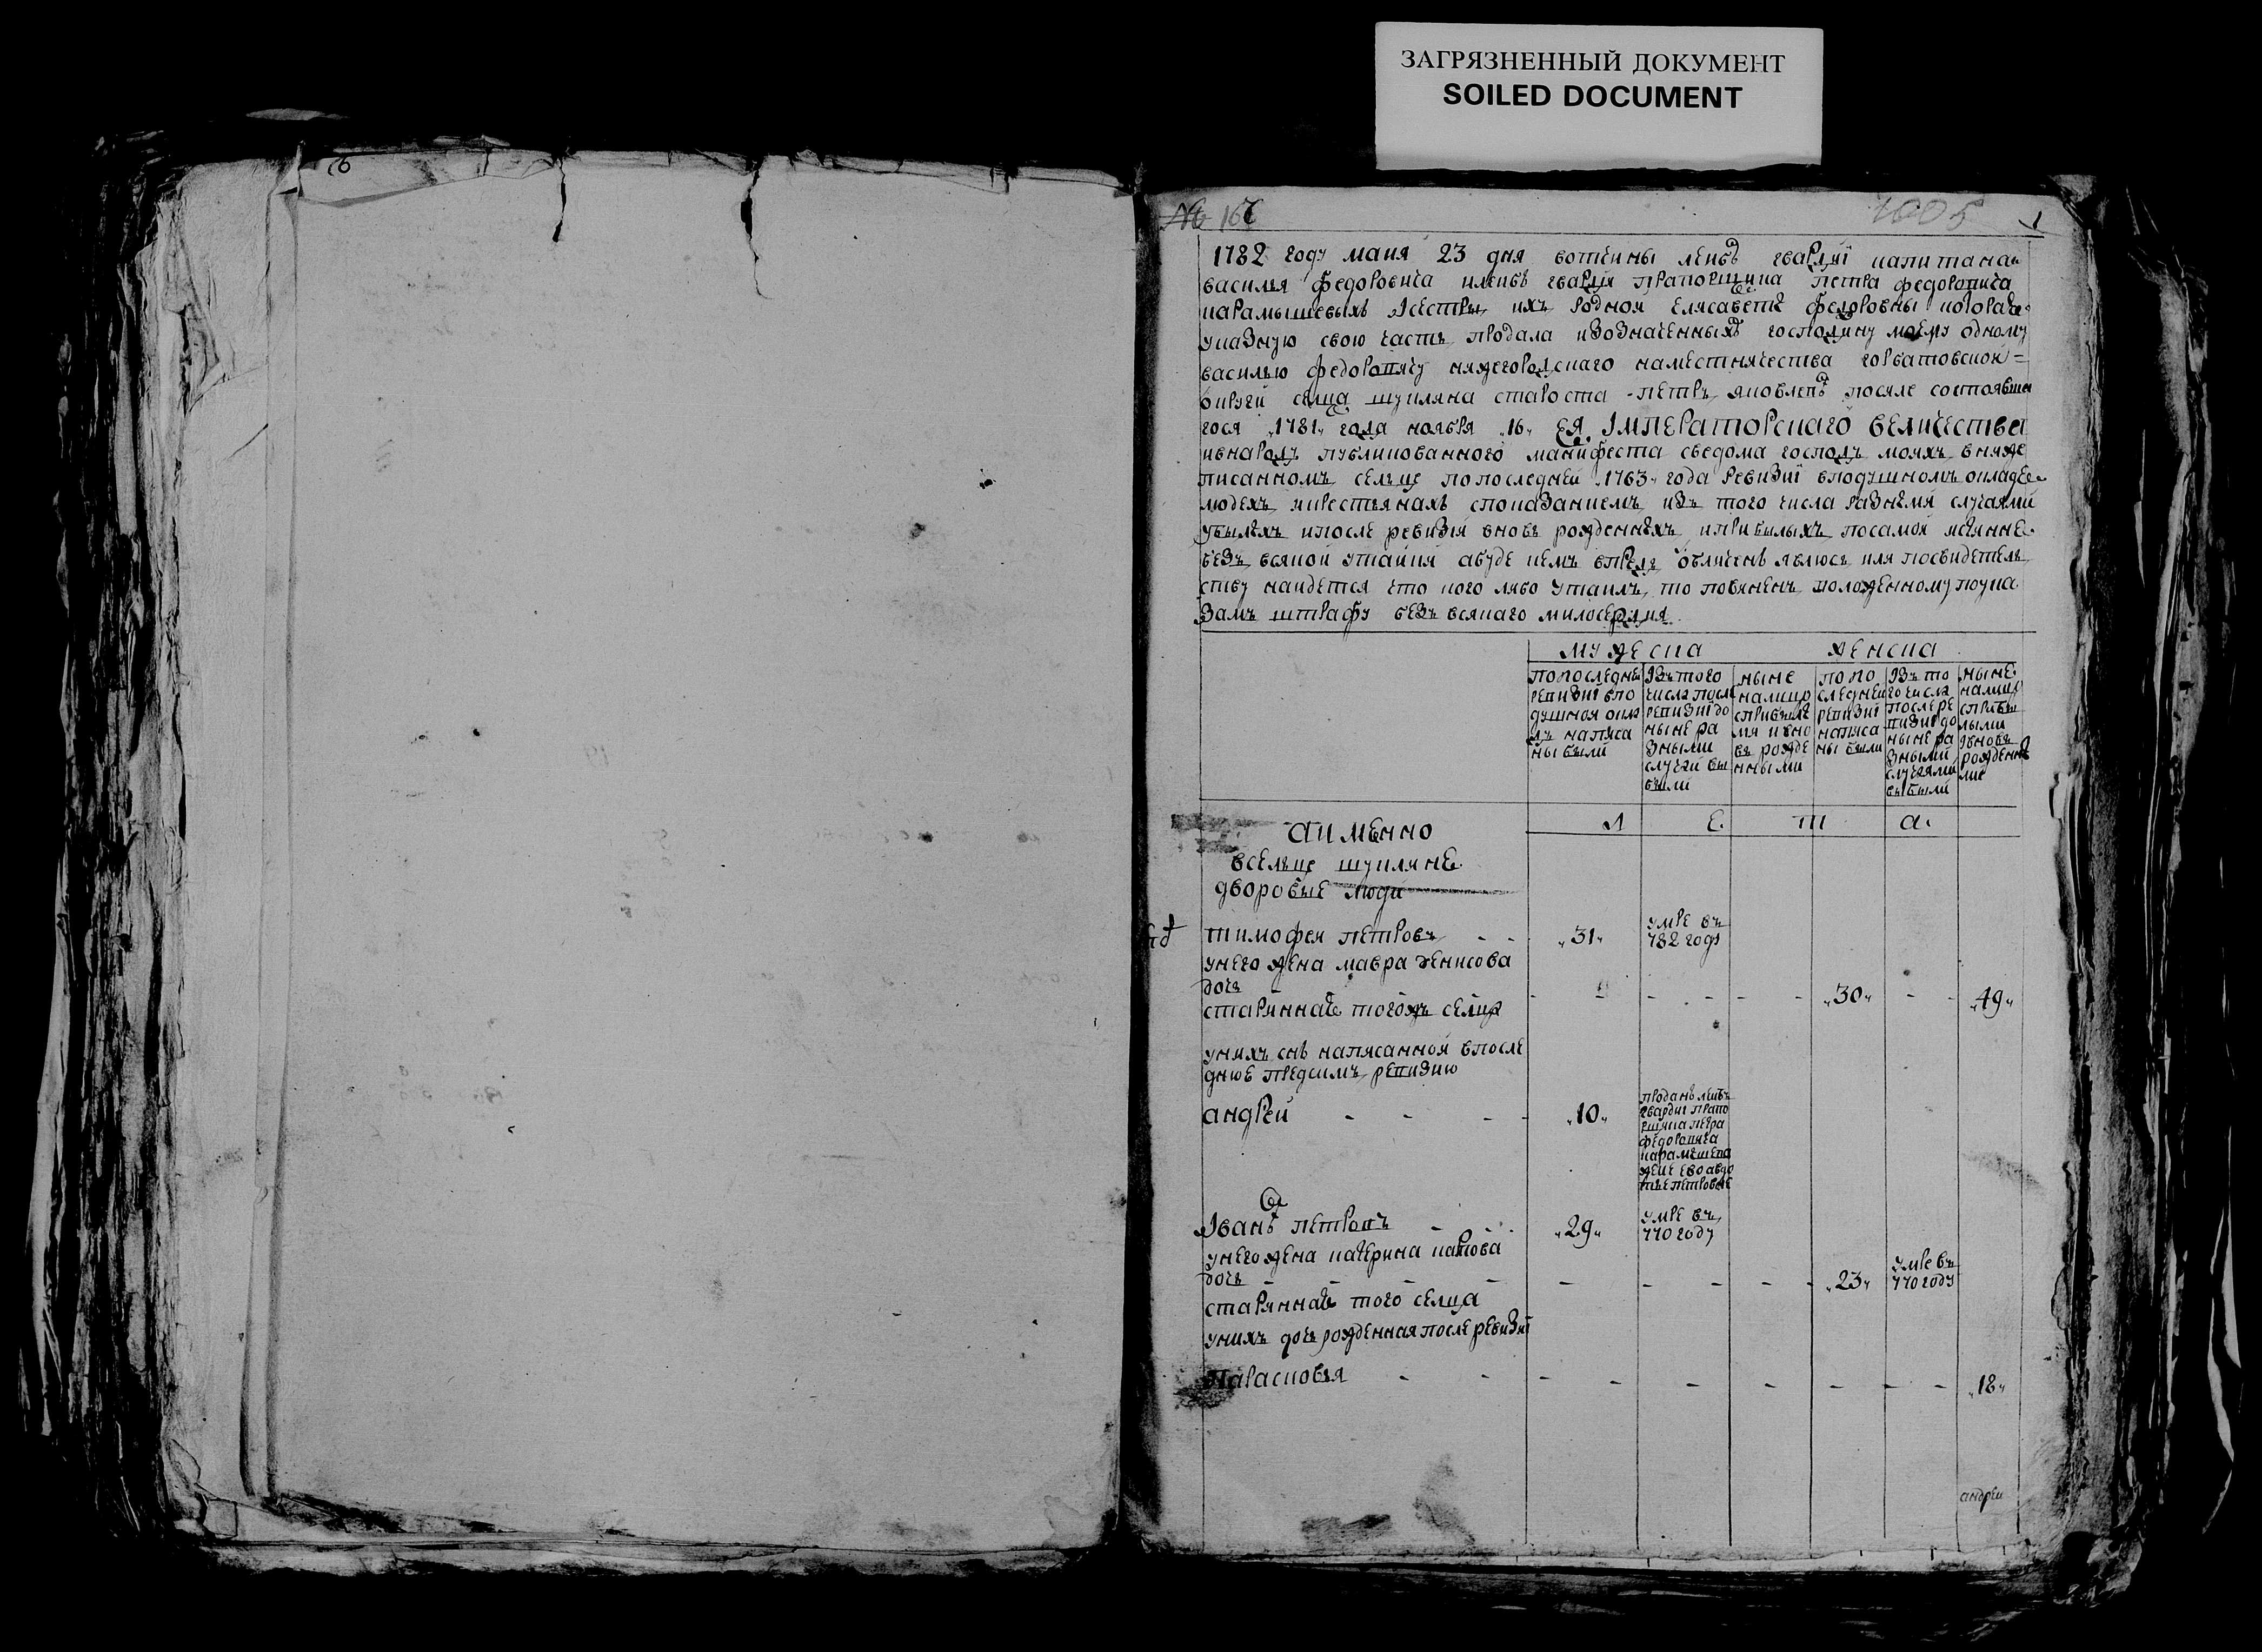 ЗАГРЯЗНЕННЫЙ ДОКУМЕНТ
SOILED DOCUMENT
№ 166
1005
1
1782 году маия 23 дня вотчины леибъ гвардиї капитана
василья федоровича илеибъ гвардїи прапорщика петра федоровича
карамышевыхъ Ісестры ихъ родной елисаветы федоровны которая
указную свою часть продала изозначенныхъ господину моему одному
василью федоровичу нижегородского наместничества горбатовской
округи селца шуклина староста петръ яковлевъ после состоявша
гося 1781 года ноября 16 ея ІМПЕРАТОРСКАГО ВЕЛИЧЕСТВА
ивнародъ публикованного манифеста сведома господъ моихъ вниже
писанномъ сельце попоследней 1763 года ревизиї вподушномъ окладе
людехъ икрестьянахъ спожазаниемъ изъ того числа разнеми случаями
убылыхъ ипосле ревизїи вновь рожденныхъ иприбылыхъ посамой истинне
безъ всякой утайки абуде чемъ впредь обличенъ явлюсь или посвидетель
ству найдется что кого либо утаилъ то повиненъ положенному поука
замъ штрафу безъ всякаго милосердия
мужеска женска
попоследней ревизиї впо душной окла дъ написа ны были
Ізътого числа после ревизиї до ныне ра зными случаи вы были
ныне налицо сприбыле ми и вно вь рожде нными
попо следней ревизиї написа ны были
Ізъ то го числа после ре визиї до ныне ра зными случаями выбыли
ныне налицо сприбы лыми Івновь рожденны ми
л е т а
аименно
всельце шуклине
дворовые люди
тимофей петровъ 31 умре въ 782 году
унего жена мавра денисова
дочь 30 49
стариннае тогожъ селца
унихъ снъ написанной впосле
днюе предсимъ ревизию
андрей 10 проданъ леибъ гвардиї прапо рщика петра федоровича карамышева жене ево авдо тье петровне
Іванъ петровъ 29 умре въ 770 году
унего жена катерина карпова
дочь 23 умре въ 770 году
стариннае того селца
унихъ дочь рожденная после ревизиї
парасковья 18
андреи